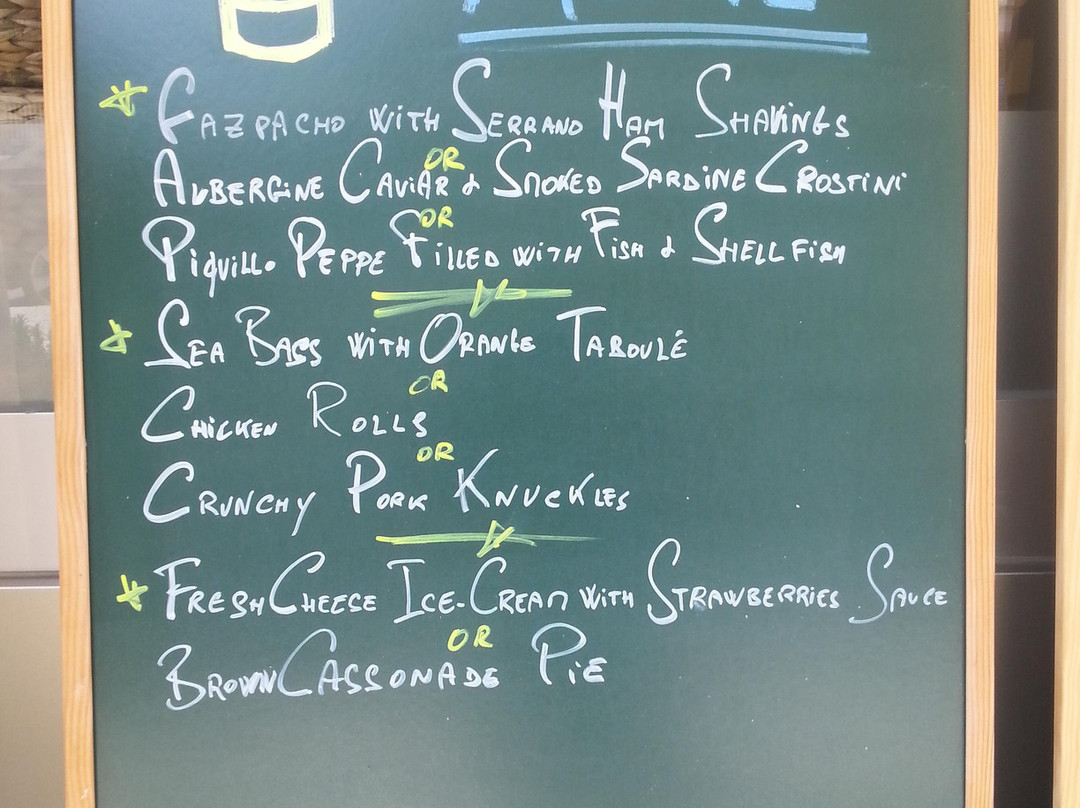 Gazpacho with Serrano Ham Shavings
or
Aubergine Caviar & Smoked Sardine Crostini
or
Piquillo Peppe Filled with Fish & Shellfish
Sea Bass with Orange Taboulé
or
Chicken Rolls
or
Crunchy Pork Knuckles
Fresh Cheese Ice-Cream with Strawberries Sauce
or
Brown Cassonade Pie